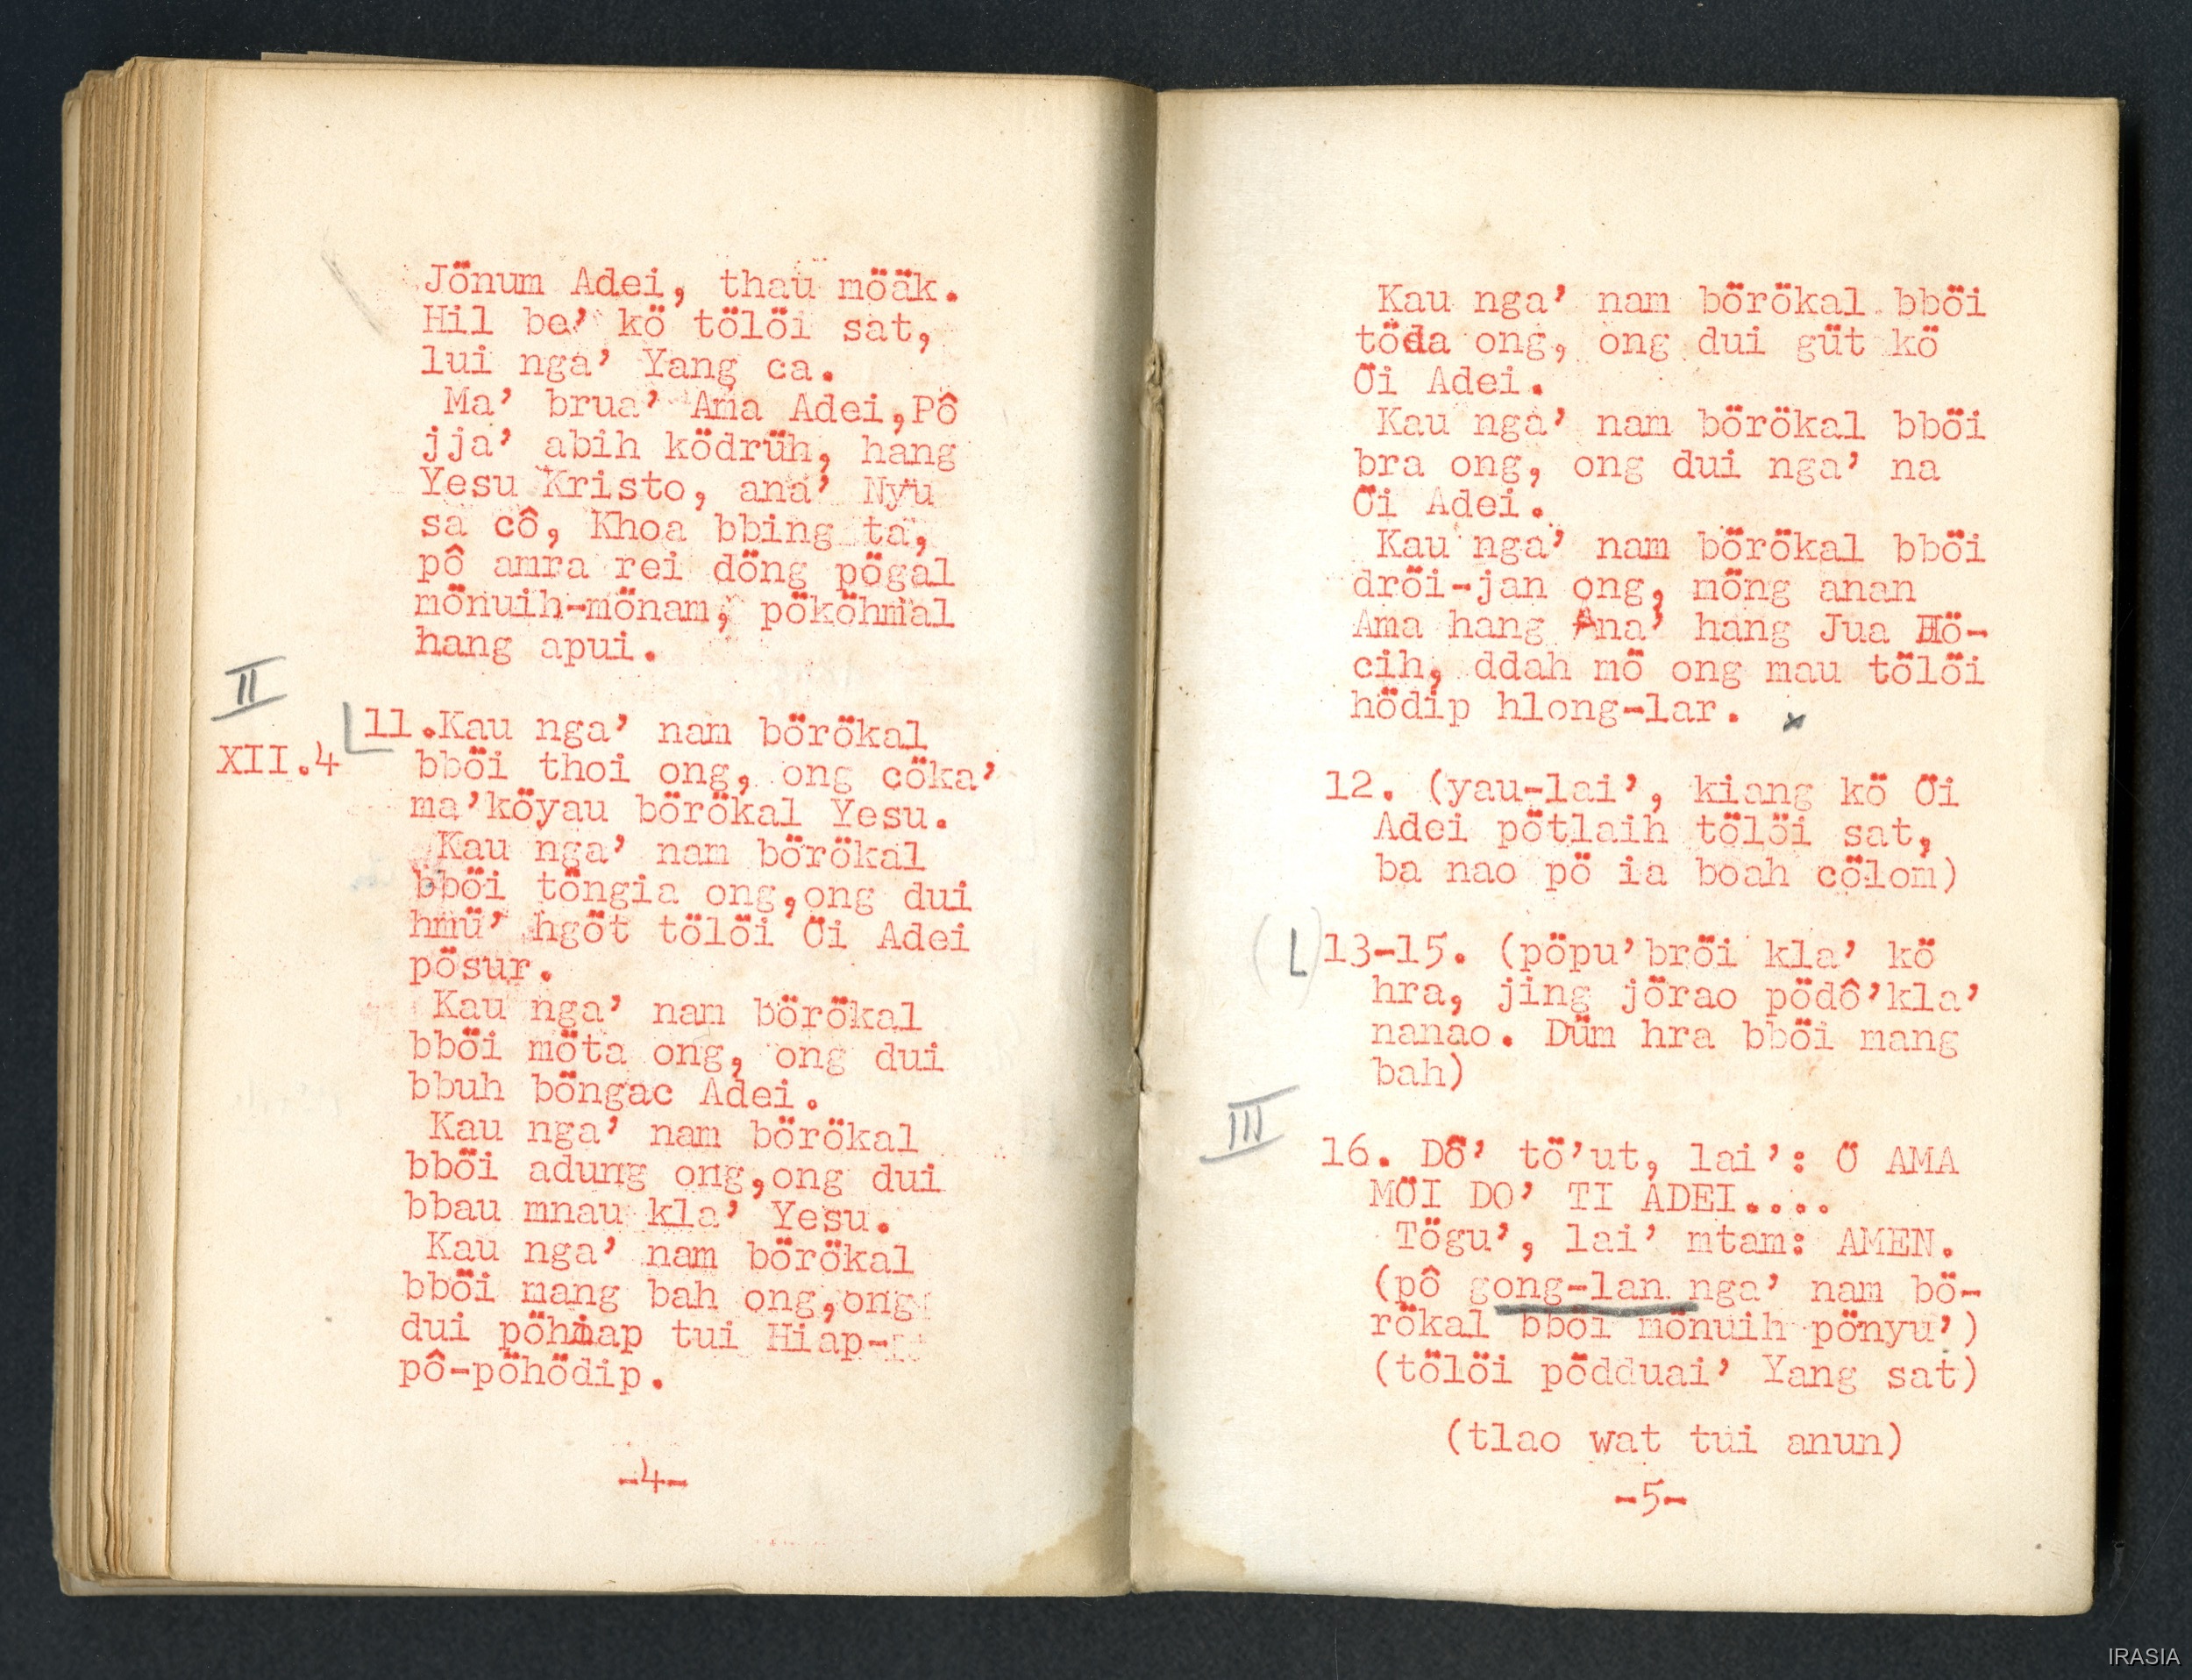 Jönum Adei, thau möäk.
Hil be’ kö tölöi sat,
lui nga’ Yang ca.
Ma’ brua’ Ama Adei,Pô
jja’ abih ködrüh, hang
Yesu Kristo, ana’ Nyu
sa cô, Khoa bbing ta,
pô amra rei döng pögal
mönuih-mönam, pököhmal
hang apui.
II
11.Kau nga’ nam börökal
XII.4
bböi thoi ong, ong cöka’
ma’köyau börökal Yesu.
Kau nga’ nam börökal
bböi töngia ong,ong dui
hmü’ hgöt tölöi Öi Adei
pösur.
Kau nga’ nam börökal
bböi möta ong, ong dui
bbuh böngac Adei.
Kau nga’ nam börökal
bböi adung ong,ong dui
bbau mnau kla’ Yesu.
Kau nga’ nam börökal
bböi mang bah ong,ong
dui pöhmap tui Hiap-
pô-pöhödip.
-4-
Kau nga’ nam börökal bböi
töda ong, ong dui güt kö
Öi Adei.
Kau nga’ nam börökal bböi
bra ong, ong dui nga’ na
Öi Adei.
Kau nga’ nam börökal bböi
dröi-jan ong, möng anan
Ama hang Ana’ hang Jua Hö-
cih, ddah mö ong mau tölöi
hödip hlong-lar. x
12. (yau-lai’, kiang kö Öi
Adei pötlaih tölöi sat,
ba nao pö ia boah cölom)
(L) 13-15. (pöpu’bröi kla’ kö
hra, jing jörao pödô’kla’
nanao. Düm hra bböi mang
bah)
III
16. Dô’ tö’ut, lai’: Ö AMA
MÖI DO’ TI ADEI....
Tögu’, lai’ mtam: AMEN.
(pô gong-lan nga’ nam bö-
rökal bböi mönuih pönyu’)
(tölöi pödduai’ Yang sat)
(tlao wat tui anun)
-5-
IRASIA